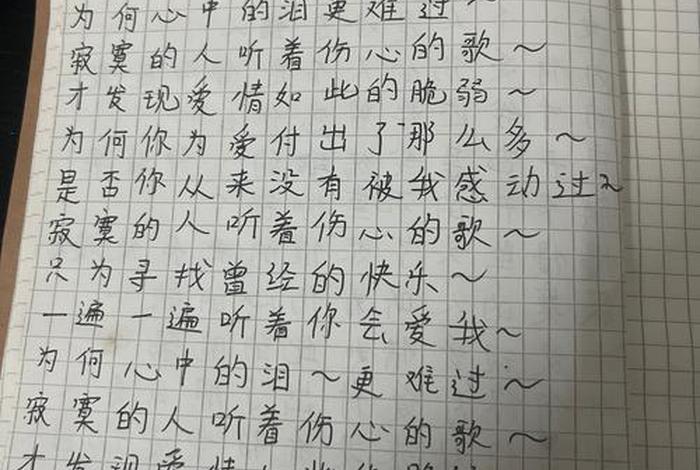 为何心中的泪更难过~
寂寞的人听着伤心的歌~
才发现爱情如此的脆弱~
为何你为爱付出了那么多~
是否你从来没有被我感动过~
寂寞的人听着伤心的歌~
只为寻找曾经的快乐~
一遍一遍听着你会爱我~
为何心中的泪~更难过~
寂寞的人听着伤心的歌~
才发现爱情如此的脆弱